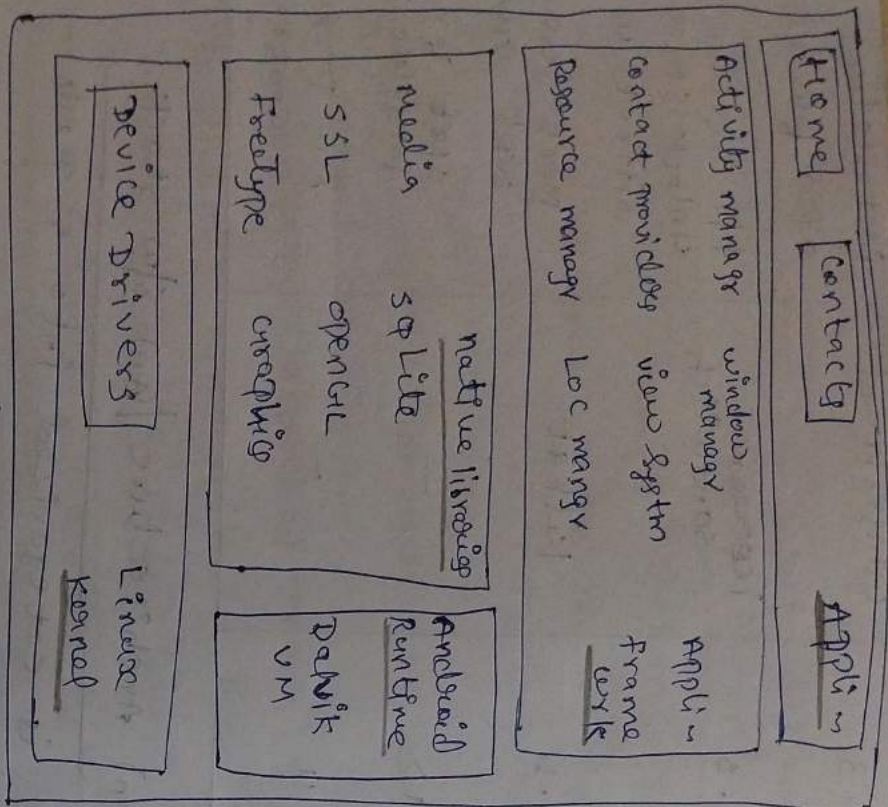 Home Contacts Applin
Activity managr window managr
Contact providers view system
Resource managr Loc mangr
Applin
Frame
work
native libraries
Media SQLite
SSL OpenGL
Freetype Graphics
Android
Runtime
Dalvik
VM
Device Drivers Linux
Kernel